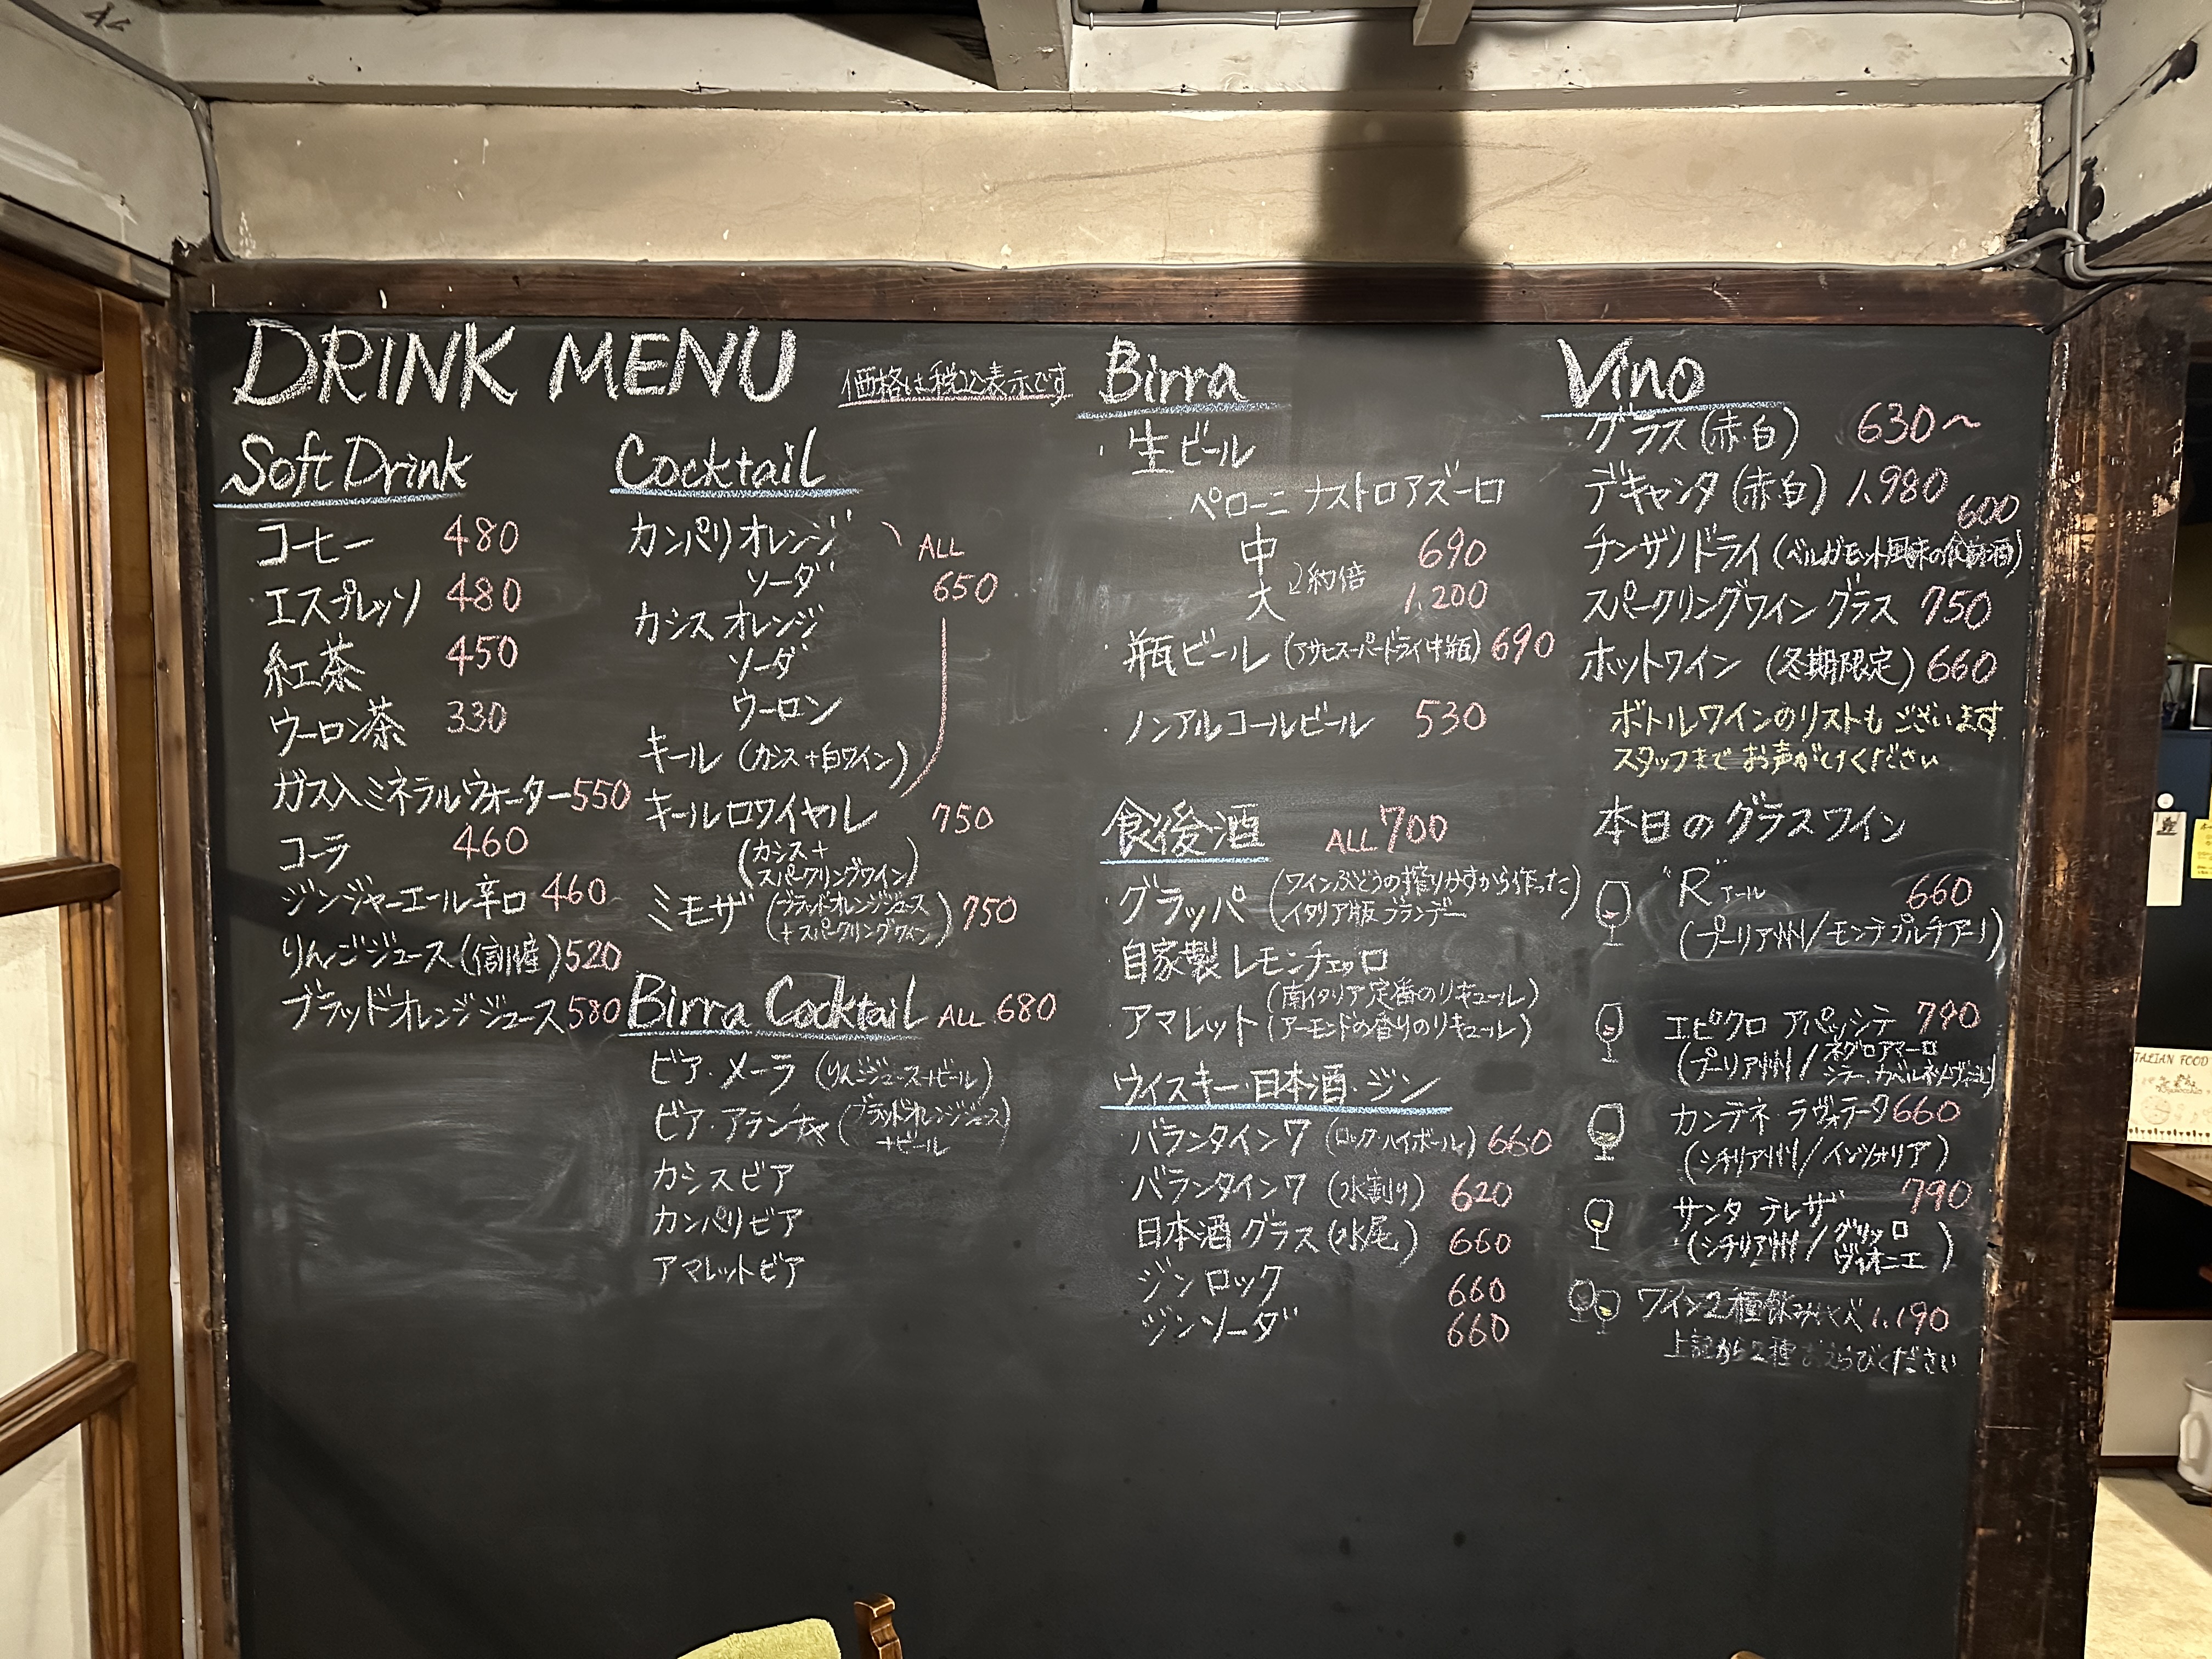 DRINK MENU
価格は税込表示です
Soft Drink
コーヒー 480
エスプレッソ 480
紅茶 450
ウーロン茶 330
ガス入ミネラルウォーター 550
コーラ 460
ジンジャーエール辛口 460
りんごジュース(信州産) 520
ブラッドオレンジジュース 580
Cocktail
カンパリオレンジ ALL
ソーダ 650
カシスオレンジ
ソーダ
ウーロン
キール (カシス+白ワイン)
キールロワイヤル 750
(カシス+
スパークリングワイン)
ミモザ (ブラッドオレンジジュース
+スパークリングワイン) 750
Birra Cocktail ALL 680
ビア・メーラ (りんごジュース+ビール)
ビア・アランチャ (ブラッドオレンジジュース
+ビール)
カシスビア
カンパリビア
アマレットビア
Birra
・生ビール
ペローニ ナストロアズーロ
中 690
約倍
大 1.200
・瓶ビール (アサヒスーパードライ中瓶) 690
・ノンアルコールビール 530
食後酒 ALL 700
・グラッパ (ワインぶどうの搾りかすから作った
イタリア版ブランデー)
自家製レモンチェッロ
(南イタリア定番のリキュール)
アマレット (アーモンドの香りのリキュール)
ウイスキー・日本酒・ジン
バランタイン7 (ロック・ハイボール) 660
バランタイン7 (水割り) 620
日本酒グラス (水尾) 660
ジンロック 660
ジンソーダ 660
Vino
グラス (赤・白) 630〜
デキャンタ (赤・白) 1.980
600
チンザノドライ (ベルガモット風味の食前酒)
スパークリングワイングラス 750
ホットワイン (冬期限定) 660
ボトルワインのリストもございます
スタッフまでお声がけください
本日のグラスワイン
"R"アール 660
(プーリア州/モンテプルチアーノ)
エピクロ アパッシテ 790
(プーリア州/ネグロアマーロ
シラー・カベルネソーヴィニヨン)
カンテネ・ラヴォテータ 660
(シチリア州/インツォリア)
サンタ テレザ 790
(シチリア州/グリッロ
ヴィオニエ)
ワイン2種飲みくらべ 1.190
上記から2種おえらびください
ITALIAN FOOD